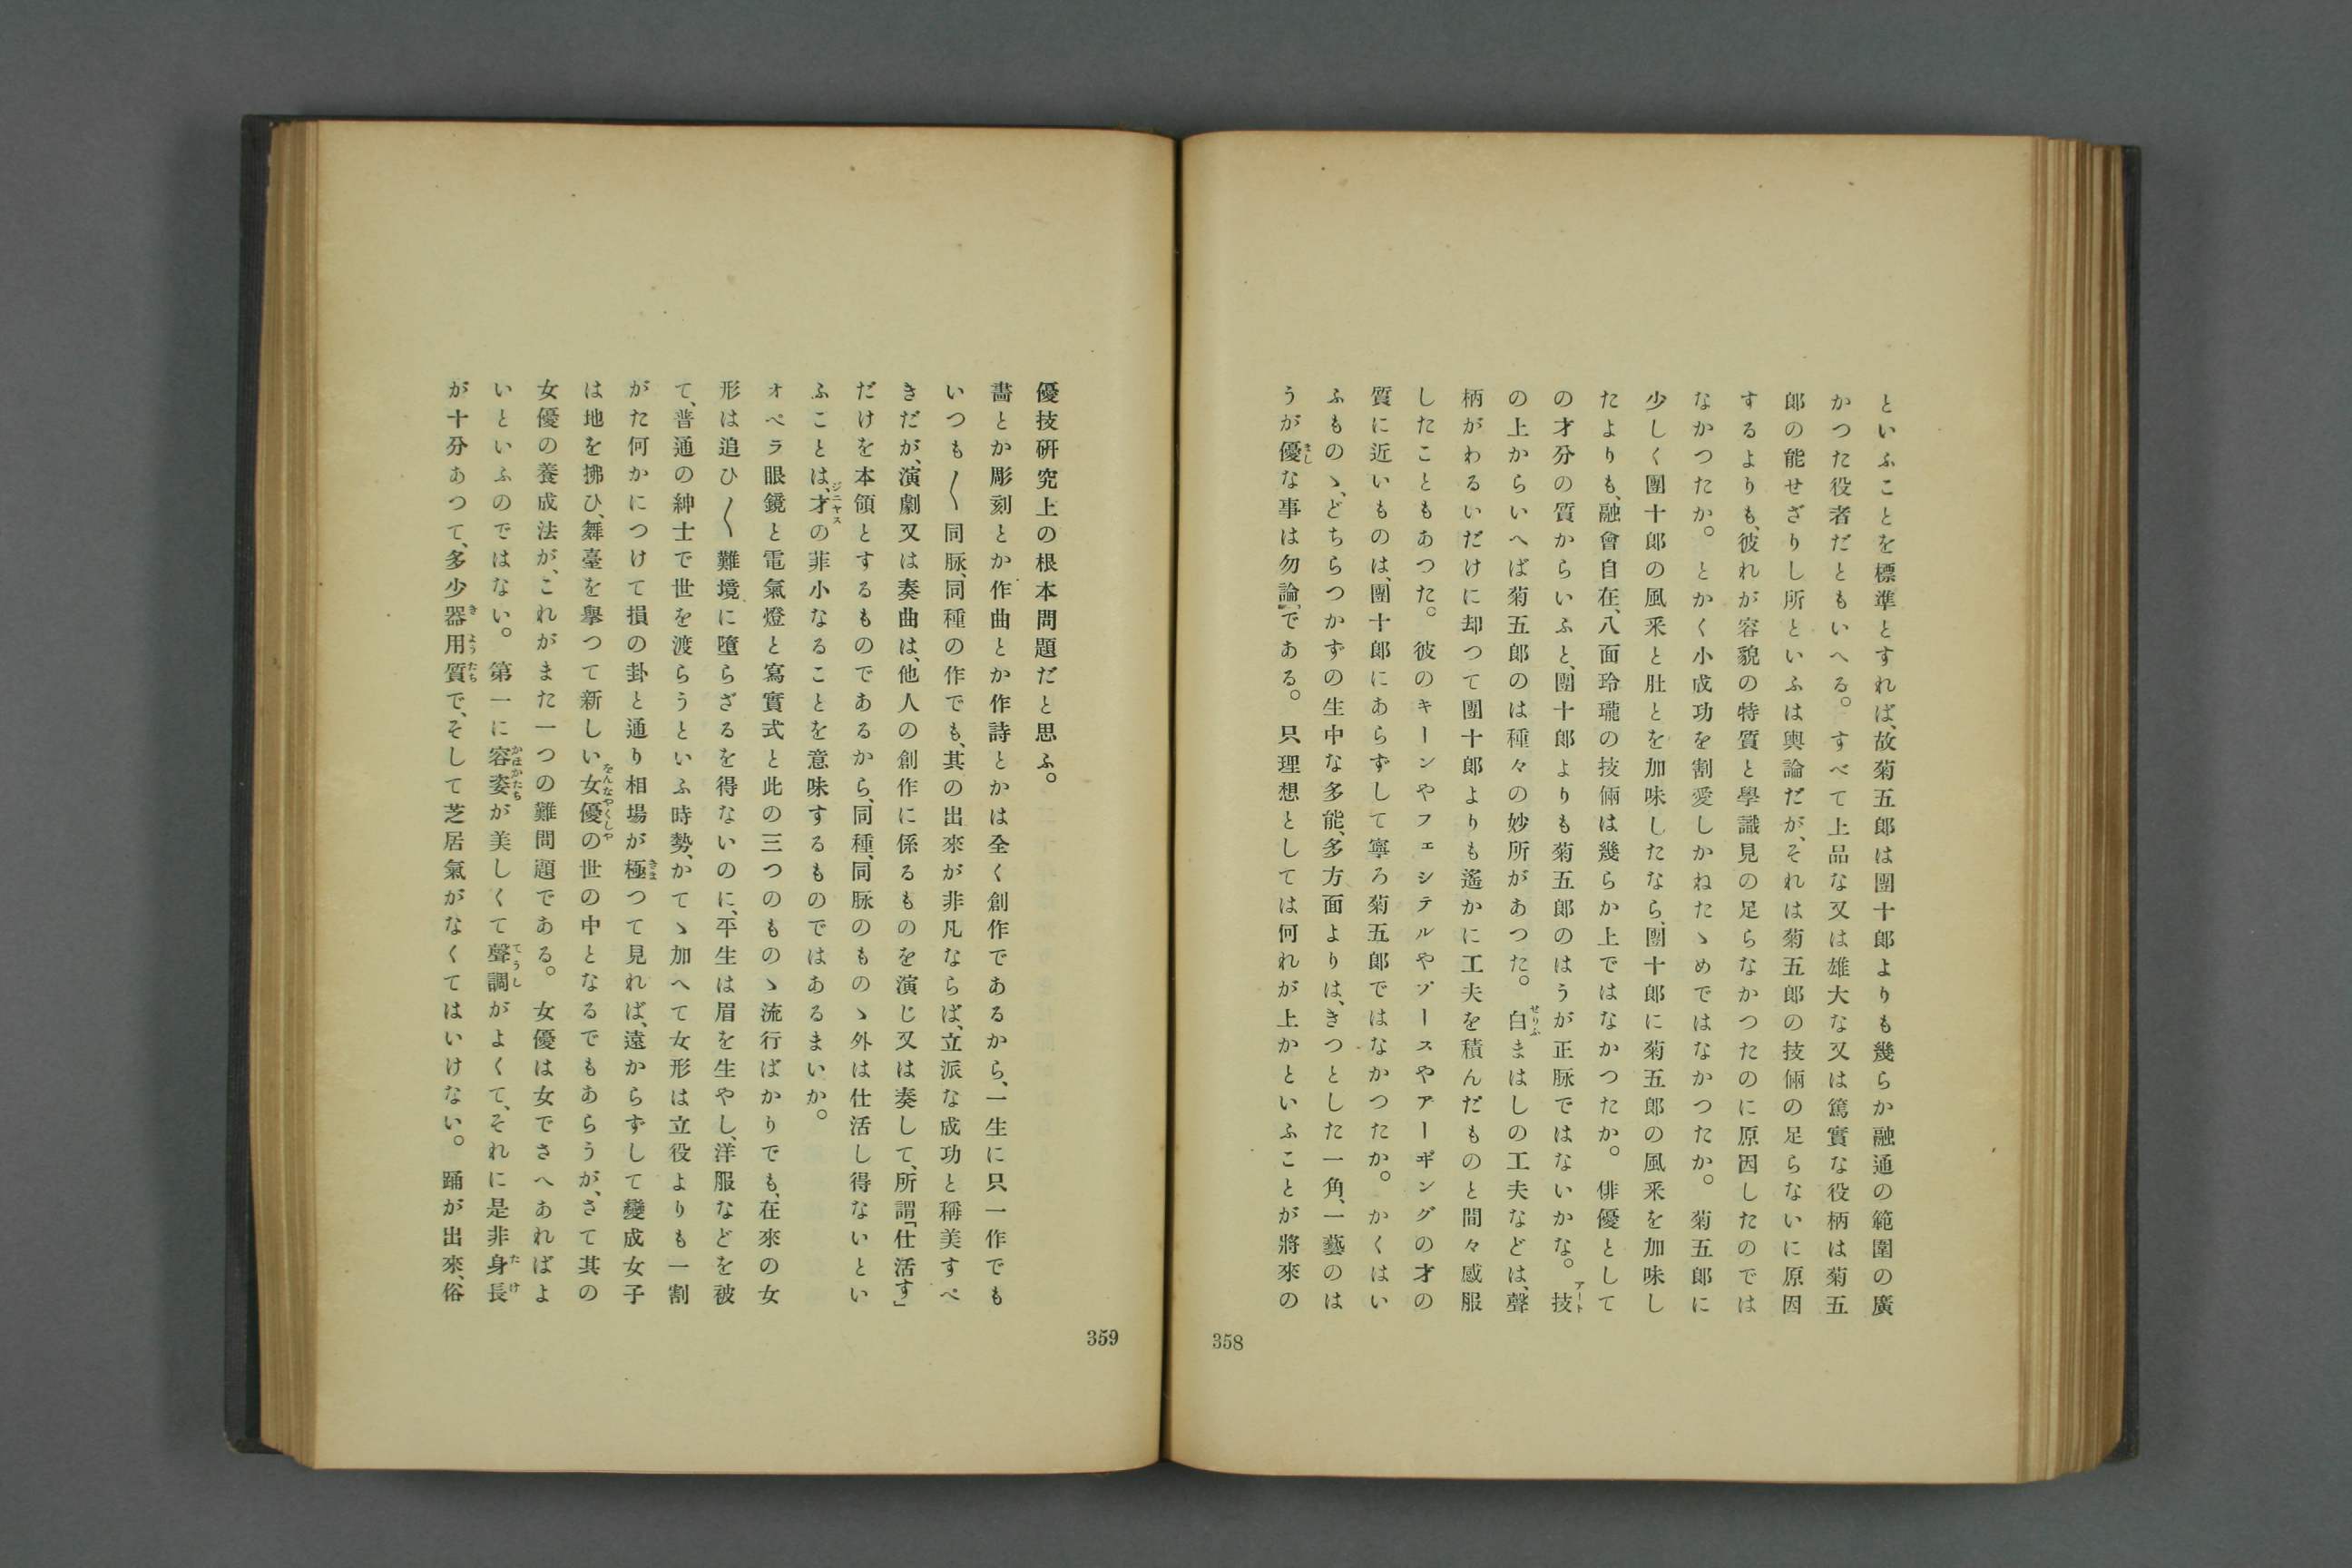 といふことを標準とすれば、故菊五郎は團十郎よりも幾らか融通の範圍の廣
かつた役者だともいへる。すべて上品な又は雄大な又は篤實な役柄は菊五
郎の能せざりし所といふは輿論だが、それは菊五郎の技倆の足らないに原因
するよりも、彼れが容貌の特質と學識見の足らなかつたのに原因したのでは
なかつたか。とかく小成功を割愛しかねたゝめではなかつたか。菊五郎に
少しく團十郎の風釆と肚とを加味したなら、團十郎に菊五郎の風釆を加味し
たよりも、融會自在、八面玲瓏の技倆は幾らか上ではなかつたか。俳優として
の才分の質からいふと、團十郎よりも菊五郎のはうが正脉ではないかな。技アート
の上からいへば菊五郎のは種々の妙所があつた。白せりふまはしの工夫などは、聲
柄がわるいだけに却つて團十郎よりも遙かに工夫を積んだものと間々感服
したこともあつた。彼のキーンやフェシテルやブースやアーヰングの才の
質に近いものは、團十郎にあらずして寧ろ菊五郎ではなかつたか。かくはい
ふものゝ、どちらつかずの生中な多能、多方面よりは、きつとした一角、一藝のは
うが優ましな事は勿論』である。只理想としては何れが上かといふことが將來の
358
優技研究上の根本問題だと思ふ。
畵とか彫刻とか作曲とか作詩とかは全く創作であるから、一生に只一作でも
いつも〳〵同脉、同種の作でも、其の出來が非凡ならば、立派な成功と稱美すべ
きだが、演劇又は奏曲は、他人の創作に係るものを演じ又は奏して、所謂「仕活す」
だけを本領とするものであるから、同種、同脉のものゝ外は仕活し得ないとい
ふことは、才ジニヤスの非小なることを意味するものではあるまいか。
オペラ眼鏡と電氣燈と寫實式と此の三つのものゝ流行ばかりでも、在來の女
形は追ひ〳〵難境に墮らざるを得ないのに、平生は眉を生やし、洋服などを被
て、普通の紳士で世を渡らうといふ時勢、かてゝ加へて女形は立役よりも一割
がた何かにつけて損の卦と通り相場が極きまつて見れば、遠からずして變成女子
は地を拂ひ、舞臺を擧つて新しい女優をんなやくしやの世の中となるでもあらうが、さて其の
女優の養成法が、これがまた一つの難問題である。女優は女でさへあればよ
いといふのではない。第一に容姿かほかたちが美しくて聲調てうしがよくて、それに是非身長たけ
が十分あつて、多少器用質きようたちで、そして芝居氣がなくてはいけない。踊が出來、俗
359